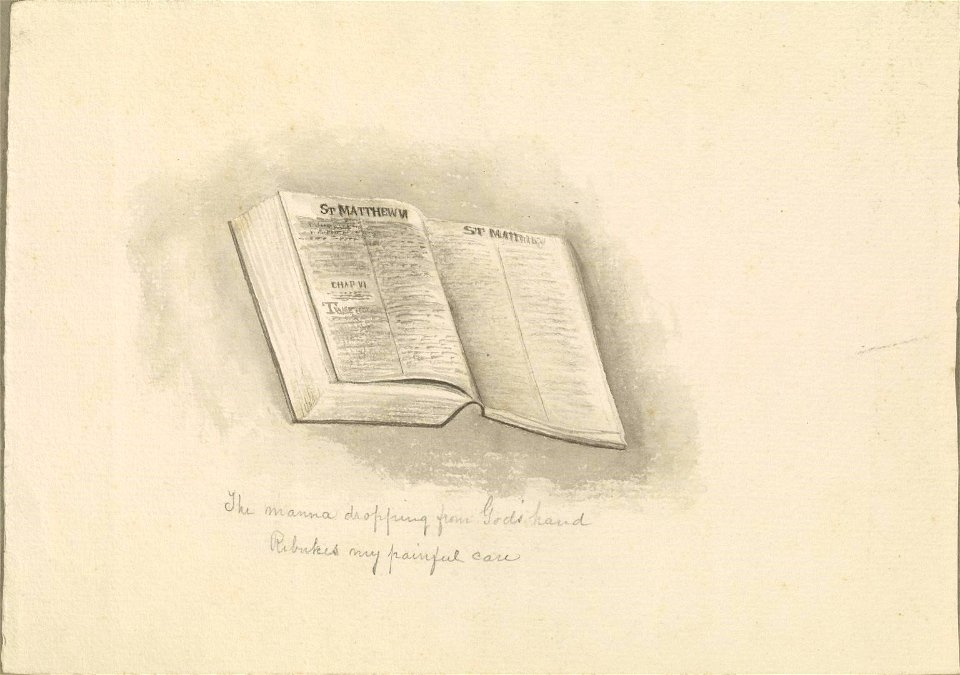 St MATTHEW VI
ST MATTHEW
CHAP VI
The manna dropping from God's hand
Rebukes my painful care